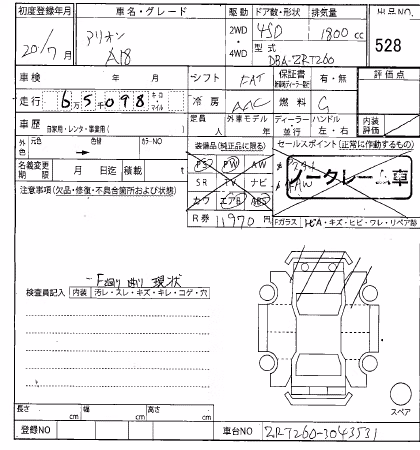 初度登録年月 車名・グレード 駆動 ドア数・形状 排気量 出品NO
20/7月 アリオン A18 2WD 4WD 4SD 1800cc 528
型式 DBA-ZRT260
車検 年 月 シフト FAT 保証書 有・無 評価点
走行 6万5千098キロ マイル 冷房 AAC 燃料 G
車歴 自家用・レンタ・事業用( ) 定員 人 外車モデル 年 ディーラー 並行 ハンドル 左・右 内装評価
外色 元色 色替 カラーNO 装備品(純正品に限る) セールスポイント(正常に作動するもの)
名義変更期限 月 日迄 積載 t PS PW AW
ノークレーム車
注意事項(欠品・修復・不具合箇所および状態) SR TV ナビ
カワ エアB ABS
R券 11970円 Fガラス トビA・キズ・ヒビ・ワレ・リペア跡
F廻り曲り 現状
検査員記入 内装 汚レ・スレ・キズ・キレ・コゲ・穴
スペア
長さ cm 幅 cm 高さ cm
登録NO 車台NO ZRT260-3043531